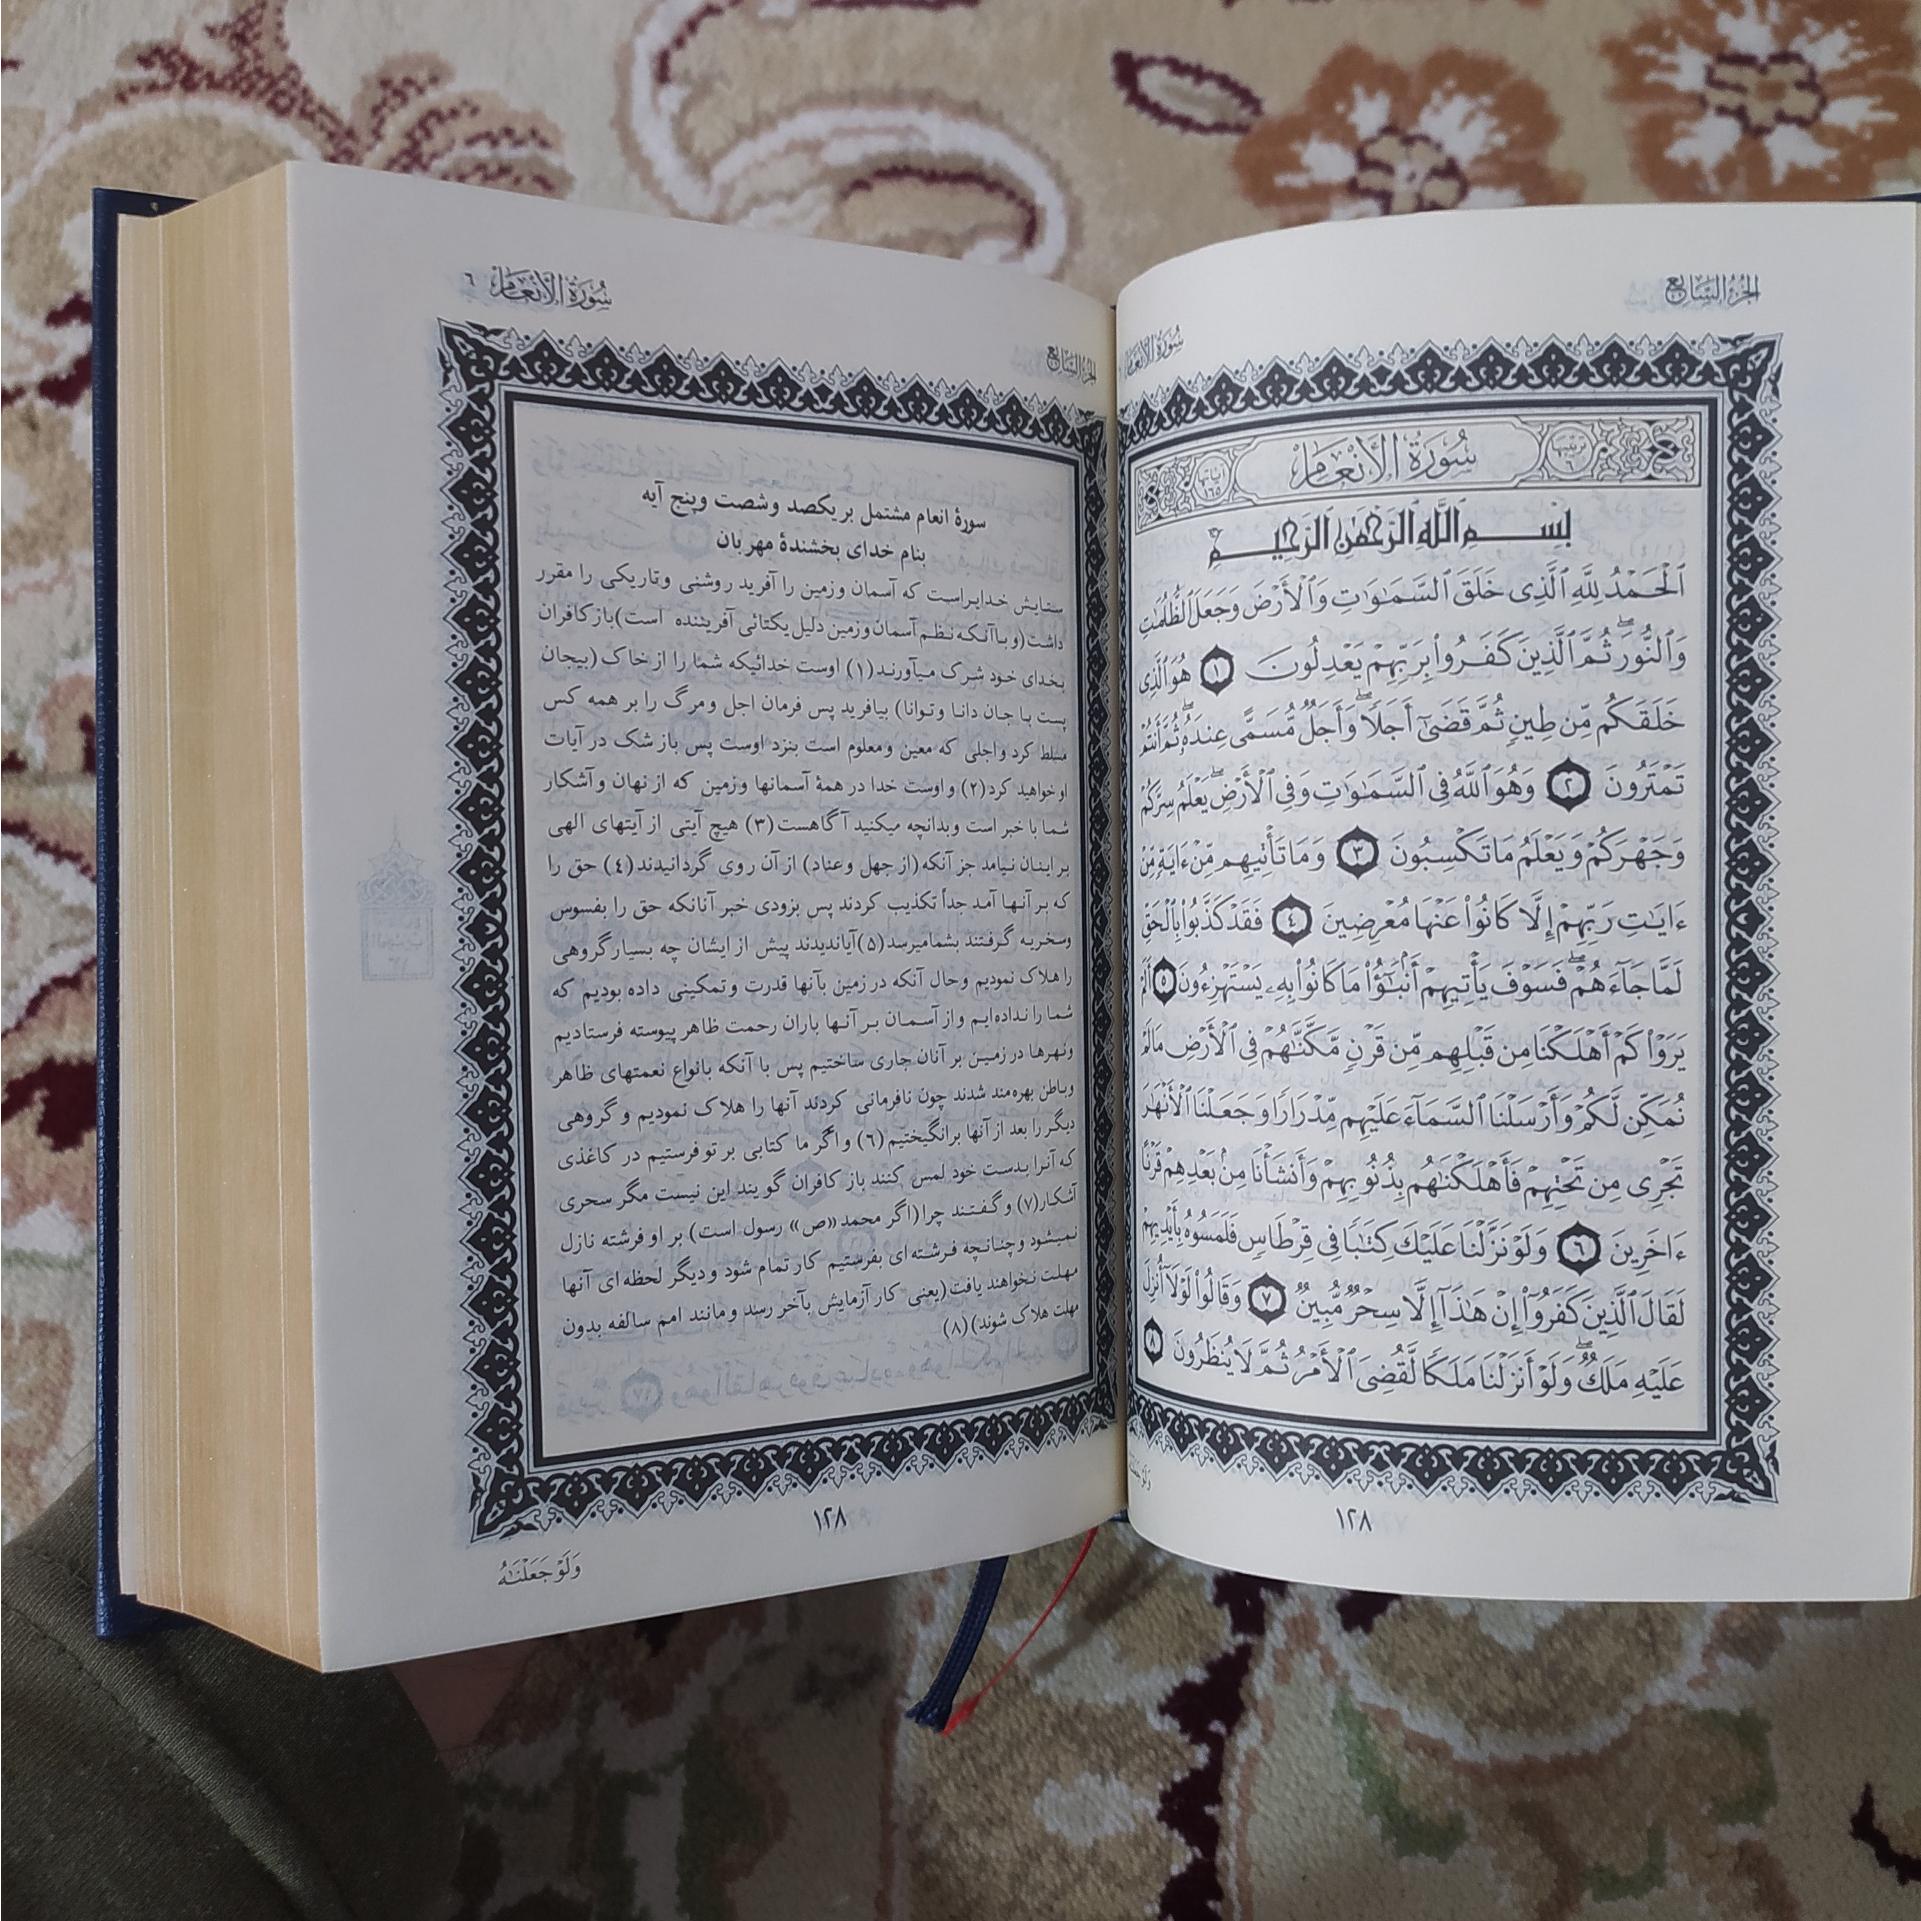 الجزء السابع
سورة الأنعام
سُورَةُ الأَنْعَام
ترتيبها ٦
آياتها ١٦٥
بِسْمِ ٱللَّهِ ٱلرَّحْمَٰنِ ٱلرَّحِيمِ
ٱلْحَمْدُ لِلَّهِ ٱلَّذِى خَلَقَ ٱلسَّمَٰوَٰتِ وَٱلْأَرْضَ وَجَعَلَ ٱلظُّلُمَٰتِ
وَٱلنُّورَ ۖ ثُمَّ ٱلَّذِينَ كَفَرُوا۟ بِرَبِّهِمْ يَعْدِلُونَ ١ هُوَ ٱلَّذِى
خَلَقَكُم مِّن طِينٍ ثُمَّ قَضَىٰٓ أَجَلًا ۖ وَأَجَلٌ مُّسَمًّى عِندَهُۥ ۖ ثُمَّ أَنتُمْ
تَمْتَرُونَ ٢ وَهُوَ ٱللَّهُ فِى ٱلسَّمَٰوَٰتِ وَفِى ٱلْأَرْضِ ۖ يَعْلَمُ سِرَّكُمْ
وَجَهْرَكُمْ وَيَعْلَمُ مَا تَكْسِبُونَ ٣ وَمَا تَأْتِيهِم مِّنْ ءَايَةٍ مِّنْ
ءَايَٰتِ رَبِّهِمْ إِلَّا كَانُوا۟ عَنْهَا مُعْرِضِينَ ٤ فَقَدْ كَذَّبُوا۟ بِٱلْحَقِّ
لَمَّا جَآءَهُمْ ۖ فَسَوْفَ يَأْتِيهِمْ أَنۢبَٰٓؤُا۟ مَا كَانُوا۟ بِهِۦ يَسْتَهْزِءُونَ ٥ أَلَمْ
يَرَوْا۟ كَمْ أَهْلَكْنَا مِن قَبْلِهِم مِّن قَرْنٍ مَّكَّنَّٰهُمْ فِى ٱلْأَرْضِ مَا لَمْ
نُمَكِّن لَّكُمْ وَأَرْسَلْنَا ٱلسَّمَآءَ عَلَيْهِم مِّدْرَارًا وَجَعَلْنَا ٱلْأَنْهَٰرَ
تَجْرِى مِن تَحْتِهِمْ فَأَهْلَكْنَٰهُم بِذُنُوبِهِمْ وَأَنشَأْنَا مِنۢ بَعْدِهِمْ قَرْنًا
ءَاخَرِينَ ٦ وَلَوْ نَزَّلْنَا عَلَيْكَ كِتَٰبًا فِى قِرْطَاسٍ فَلَمَسُوهُ بِأَيْدِيهِمْ
لَقَالَ ٱلَّذِينَ كَفَرُوٓا۟ إِنْ هَٰذَآ إِلَّا سِحْرٌ مُّبِينٌ ٧ وَقَالُوا۟ لَوْلَآ أُنزِلَ
عَلَيْهِ مَلَكٌ ۖ وَلَوْ أَنزَلْنَا مَلَكًا لَّقُضِىَ ٱلْأَمْرُ ثُمَّ لَا يُنظَرُونَ ٨
١٢٨
الجزء السابع
سورة الأنعام ٦
سورهٔ انعام مشتمل بر یکصد و شصت و پنج آیه
بنام خدای بخشندهٔ مهربان
ستایش خدایراست که آسمان و زمین را آفرید روشنی و تاریکی را مقرر
داشت (و با آنکه نظم آسمان و زمین دلیل یکتائی آفریننده است) باز کافران
بخدای خود شرک میآورند (۱) اوست خدائیکه شما را از خاک (بیجان
پست با جان دانا و توانا) بیافرید پس فرمان اجل و مرگ را بر همه کس
مسلط کرد و اجلی که معین و معلوم است بنزد اوست پس باز شک در آیات
او خواهید کرد (۲) و اوست خدا در همهٔ آسمانها و زمین که از نهان و آشکار
شما با خبر است و بدانچه میکنید آگاهست (۳) هیچ آیتی از آیتهای الهی
بر اینان نیامد جز آنکه (از جهل و عناد) از آن روی گردانیدند (٤) حق را
که بر آنها آمد جداً تکذیب کردند پس بزودی خبر آنانکه حق را بفسوس
وسخریه گرفتند بشما میرسد (۵) آیا ندیدند پیش از ایشان چه بسیار گروهی
را هلاک نمودیم وحال آنکه در زمین بآنها قدرت و تمکینی داده بودیم که
شما را نداده‌ایم و از آسمان بر آنها باران رحمت ظاهر پیوسته فرستادیم
ونهرها در زمین بر آنان جاری ساختیم پس با آنکه بانواع نعمتهای ظاهر
وباطن بهره‌مند شدند چون نافرمانی کردند آنها را هلاک نمودیم و گروهی
دیگر را بعد از آنها برانگیختیم (٦) و اگر ما کتابی بر تو فرستیم در کاغذی
که آنرا بدست خود لمس کنند باز کافران گویند این نیست مگر سحری
آشکار (۷) و گفتند چرا (اگر محمد «ص» رسول است) بر او فرشته نازل
نمیشود وچنانچه فرشته‌ای بفرستیم کار تمام شود و دیگر لحظه‌ای آنها
مهلت نخواهند یافت (یعنی کار آزمایش بآخر رسد و مانند امم سالفه بدون
مهلت هلاک شوند) (۸)
١٢٨
وَلَوْ جَعَلْنَٰهُ